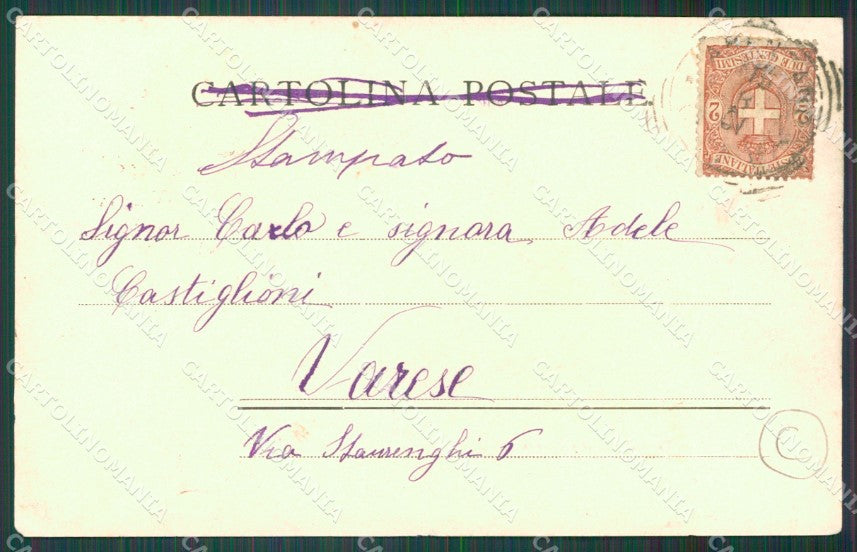 CARTOLINA POSTALE.
DUE CENTESIMI
2 2
Stampato
Signor Carlo e signora Adele
Castiglioni
Varese
Via Staurenghi 6
C
CARTOLINOMANIA